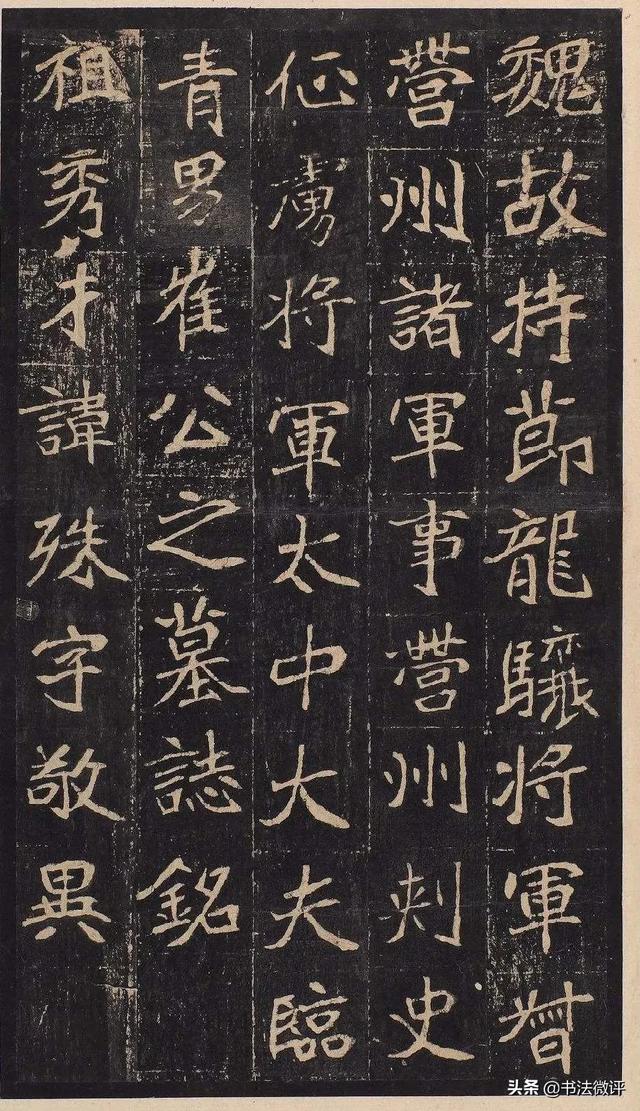 魏故持節龍驤將軍督
營州諸軍事營州刺史
征虜將軍太中大夫臨
青男崔公之墓誌銘
祖秀才諱殊字敬異
头条@书法微评